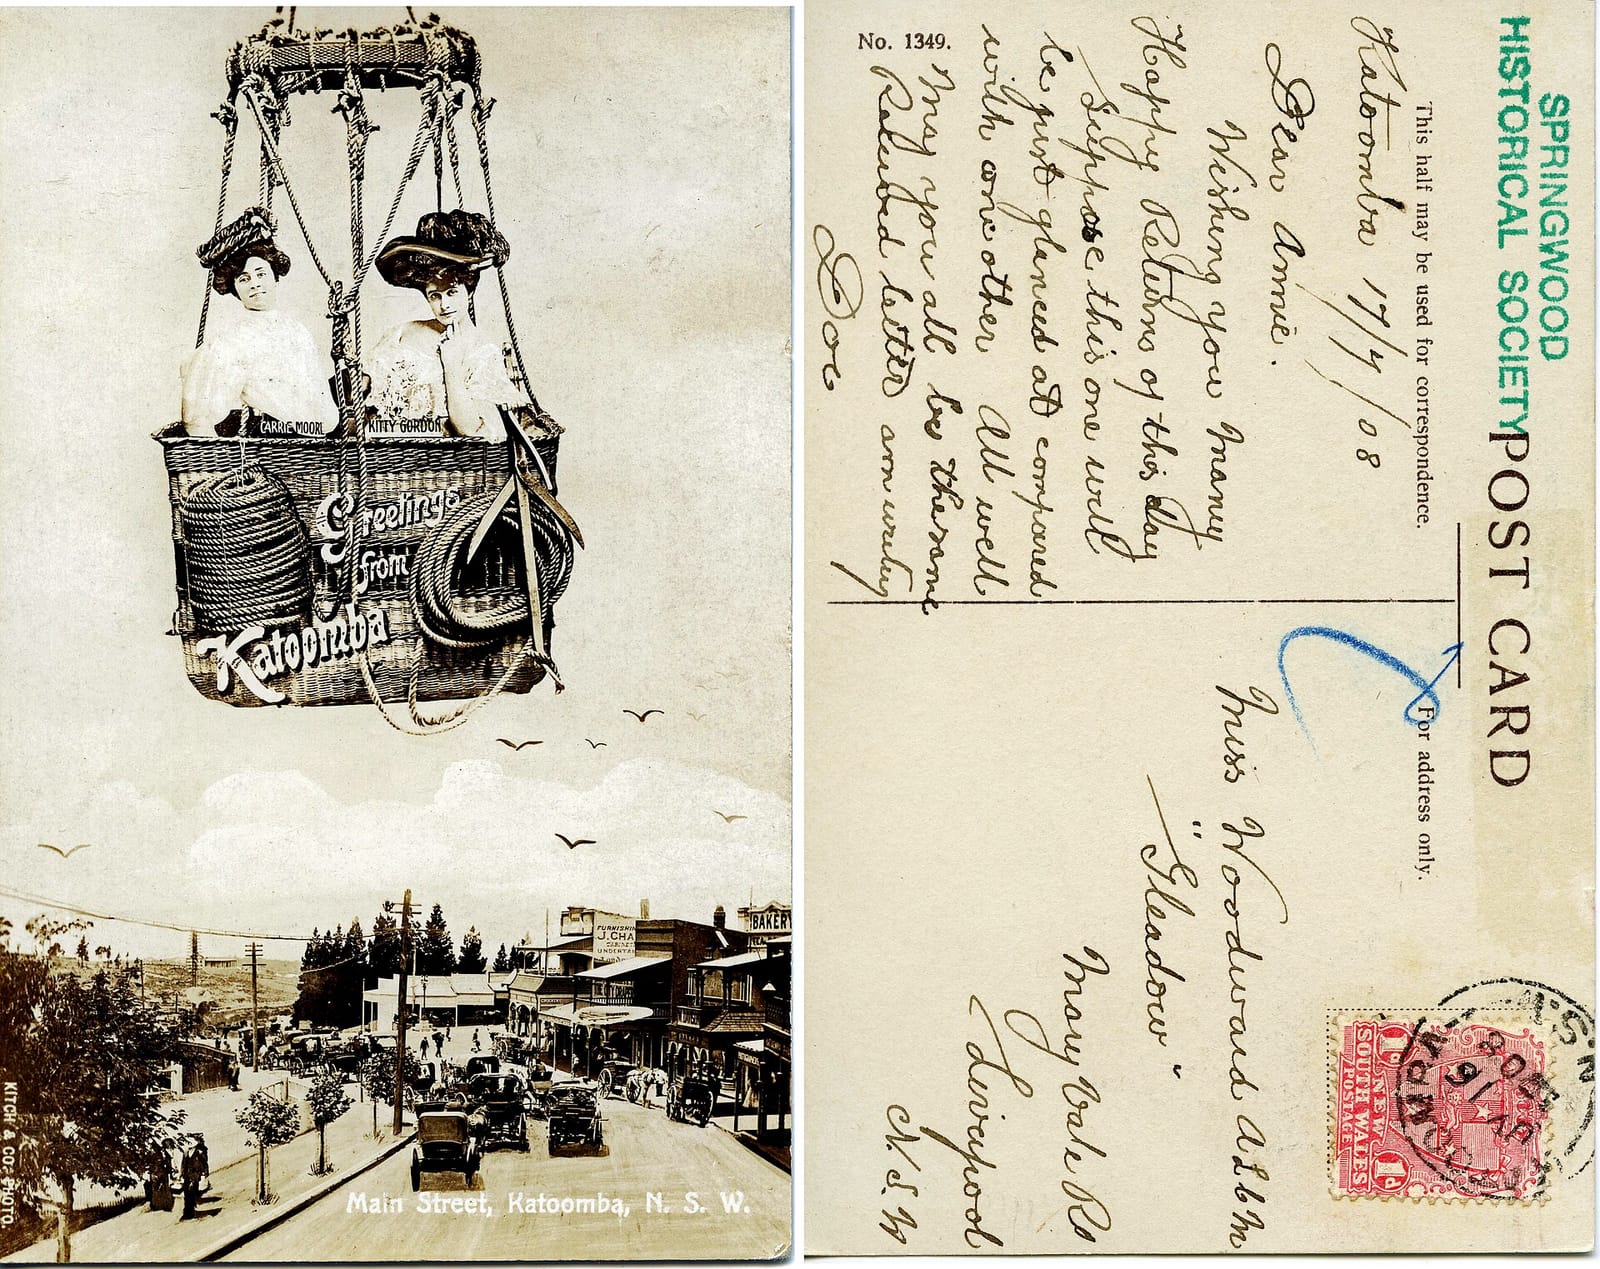 CARRIE MOORE
KITTY GORDON
Greetings
from
Katoomba
BAKERY
FURNISHIN
J. CHA
CABINET
UNDERTA
KITCH & CO. PHOTO.
Main Street, Katoomba, N. S. W.
SPRINGWOOD
HISTORICAL SOCIETY
POST CARD
This half may be used for correspondence.
For address only.
Katoomba 17/7/08
Dear Annie.
Wishing you many
Happy Returns of this day
Suppose this one will
be just glanced at compared
with one other All well
May you all be the same
letter am writing
Doe
No. 1349.
Miss Woodward A.L.C.M
"Gleadow"
Mary Vale Rd
Liverpool
N. S. W
NEW
SOUTH WALES
POSTAGE
1d
1d
N.S.W
JY 16
08